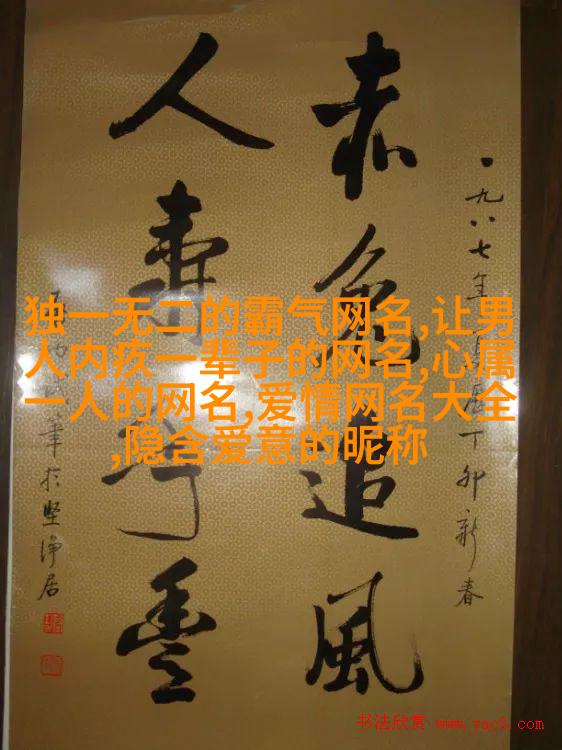 独一无二的霸气网名,让男
人内疚一辈子的网名,心属
一人的网名,爱情网名大全
,隐含爱意的昵称
一九八七年
丁卯新春
赤兔追風
人壽年豐
筆於堅淨居
书法欣赏 www.yac8.com